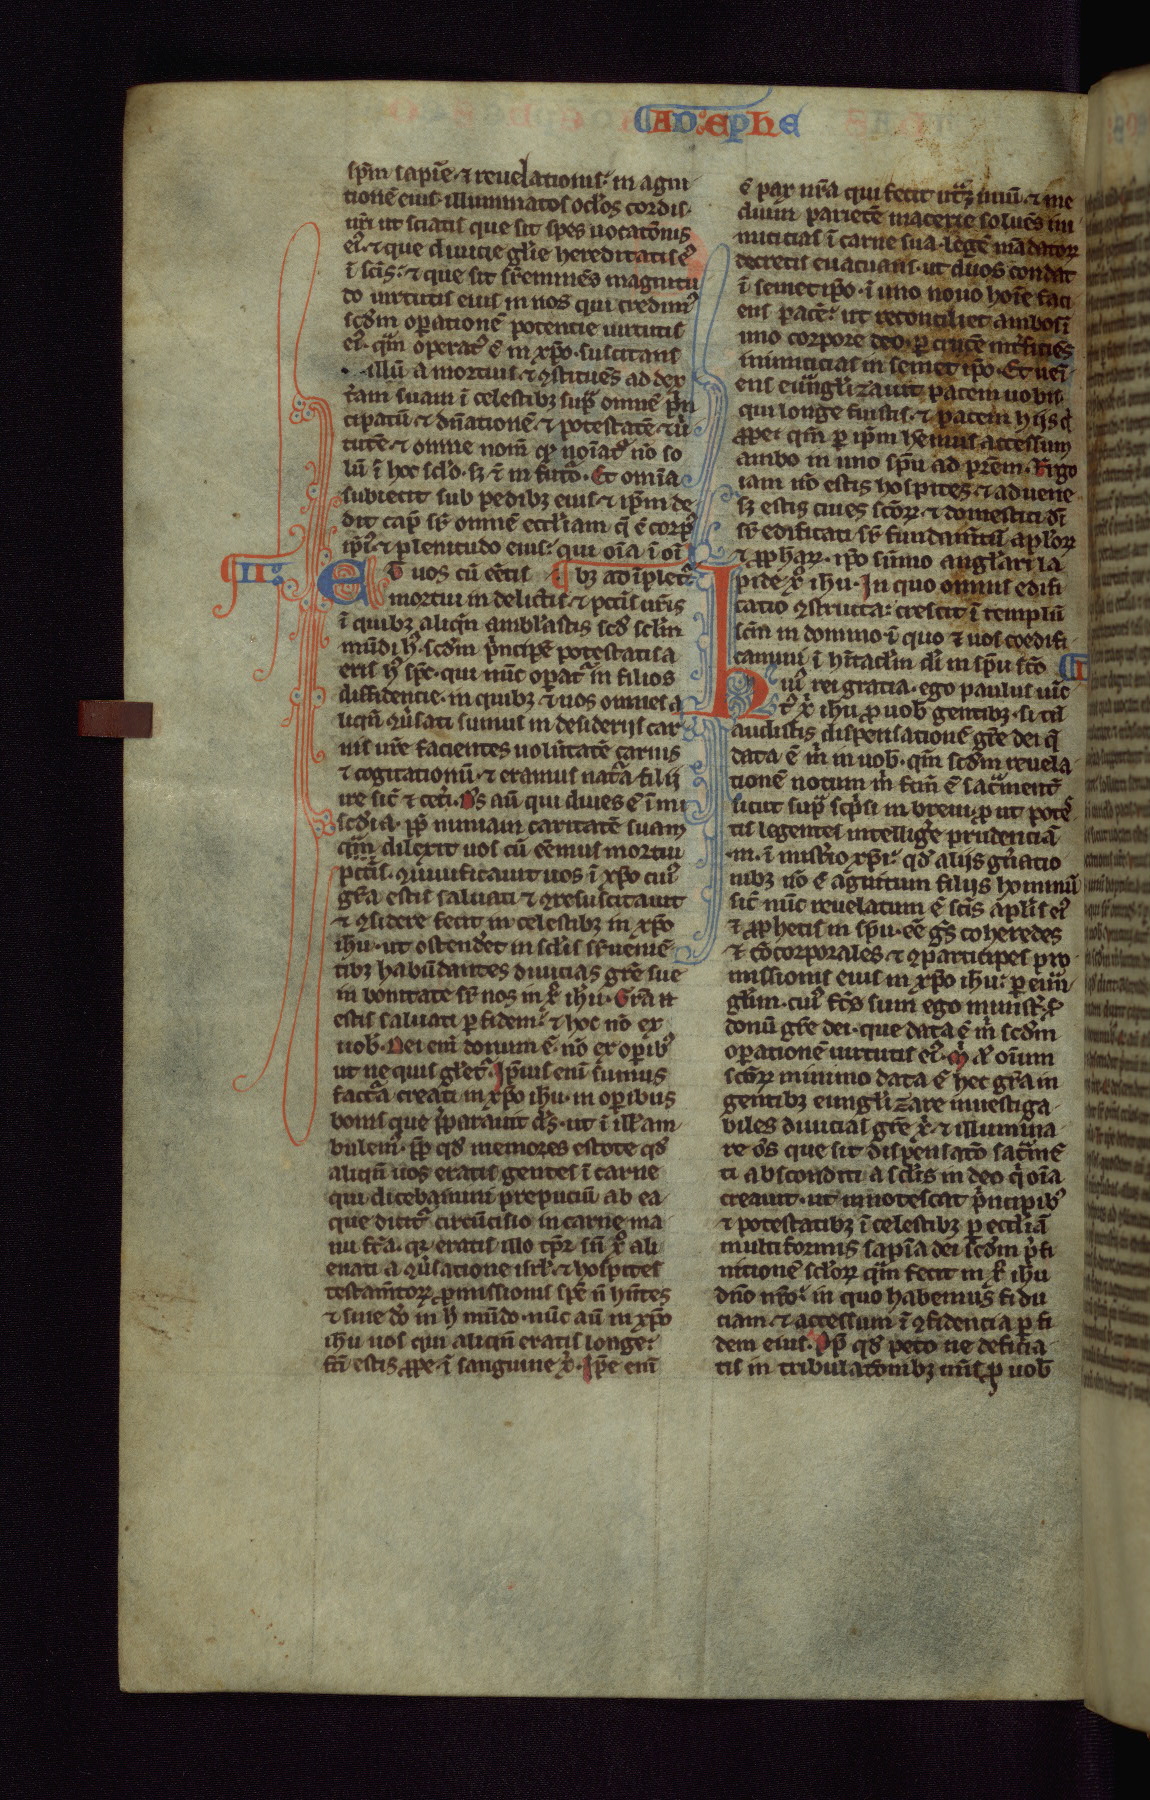 AD EPHE
sp̄m sapiē ⁊ reuelationis· in agni
tionē eius· illuminatos oc̄los cordis·
ur̄i ut sciatis que sit spes uocatōnis
ei᷒ ⁊ que diuicie gl̄ie hereditatis e᷒
ī sc̄is· ⁊ que sit sr̄eminēs magnitu
do uirtutis eius in nos qui credim᷒
sc̄dm oꝑationē potencie uirtutis
ei᷒· q̄m operat᷒ ē in xp̄o· suscitans
illū a mortuis ⁊ ꝯstituēs ad dex
t̄am suam ī celestibꝫ sup̄ omnē p̄n
cipatū ⁊ dn̄ationē ⁊ potestatē ⁊ uir
tutē· ⁊ omne nom̄ qd̄ noīat᷒ nō so
lū ī hoc sc̄lo· sꝫ ⁊ in futo᷒· Et omīa
subiecit sub pedibꝫ eius ⁊ ip̄m de
dit cap̄ sr̄ omnē eccl̄iam q̄ ē corp᷒
ip̄i᷒ ⁊ plenitudo eius· qui oīa ī oī
II ET uos cū eētis bꝫ adīplet᷒
mortui in delictis ⁊ pcc̄is ur̄is
ī quibꝫ aliqn̄ amblastis scd̄ sclm̄
mūdi h᷒· sc̄dm p̄ncipē potestatis a
eris h᷒ sp̄c· qui nūc opat᷒ in filios
diffidencie· in quibꝫ ⁊ nos omnes a
liqn̄ ꝯūsati sumus in desiderijs car
nis nr̄e facientes uolūtatē carnis
⁊ cogitationū· ⁊ eramus nat᷒a filij
ire sic̄ ⁊ cet̄i· Ds̄ aū qui diues ē ī mi
sc̄dia· ꝓp̄ nimiam caritatē suam
q̄m dilexit nos cū eēmus mortui
pcc̄is· ꝯuiuificauit nos ī xp̄o cui᷒
gr̄a estis saluati ⁊ ꝯresuscitauit
⁊ ꝯsidere fecit in celestibꝫ in xp̄o
ih̄u· ut ostendet in sc̄lis sr̄ueniē
tibꝫ habūdantes diuicias gr̄e sue
in bonitate sr̄ nos in x᷒ ih̄u· Gr̄a n̄
estis saluati ꝑ fidem· ⁊ hoc nō ex
uob̄· Dei em̄ donum ē· nō ex oꝑib᷒
ut ne quis gl̄iet᷒· Ip̄ius enī sumus
fact᷒a creati in xp̄o ih̄u· in oꝑibus
bonis que p̄parauit ds̄· ut ī ill᷒ am
bulem᷒· ꝓp̄ qd̄ memores estote qd̄
aliqn̄ uos eratis gentes ī carne
qui dicebamini prepuciū ab ea
que dicit᷒ circūcisio in carne ma
nu fc̄a· qr̄ eratis illo tp̄r sn̄ x᷒ ali
enati a ꝯūsatione isrl̄· ⁊ hospites
testam̄torꝝ ꝓmissionis spē n̄ hn̄tes
⁊ sine dō in h᷒ mūdo· nūc aū in xp̄o
ih̄u uos qui aliqn̄ eratis longe·
fc̄i estis ꝓpe ī sanguine x᷒· Ip̄e enī
ē pax nr̄a qui fecit utꝫ unū· ⁊ me
dium parietē macerie soluēs ini
micicias ī carne sua· legē mādatorꝝ
decretis euacuans· ut duos condat
ī semet ip̄o· ī uno nouo hoīe faci
ens pacē· ut reconciliet ambos ī
uno corpore deo· ꝑ crucē int̄ficiēs
inimicicias in semet ip̄o· Et ueni
ens euāgl̄izauit pacem uobis
qui longe fuistis· ⁊ pacem hijs q̄
ꝓpe· qm̄ ꝑ ip̄m hēmus accessum
ambo in uno sp̄u ad pr̄em· Ergo
iam nō estis hospites ⁊ aduene
sꝫ estis ciues sc̄orꝝ ⁊ domestici dī
sr̄ edificati sr̄ fundam̄tū aplorꝝ
⁊ ꝓph̄arꝝ ip̄o sūmo angl̄ari la
pide x᷒ ih̄u· In quo omnis edifi
catio ꝯstructa· crescit ī templū
sc̄m in domino· ī quo ⁊ uos coedifi
camini ī hītaclm̄ di᷒ in sp̄u sc̄o
Hui᷒ rei gratia· ego paulus uīc
t᷒ x᷒ ih̄u ꝓ uob̄ gentibꝫ· si tn̄
audistis dispensationē gr̄e dei q̄
data ē m̄ in uob̄· qm̄ sc̄dm reuela
tionē notum m̄ fcm̄ ē sac̄ment᷒
sicut sup̄ sc̄psi in breui· ꝓ ut potes
tis legentes intelliḡe prudenciā
·m· ī mist̄io xp̄i· qd̄ alijs gn̄atio
nibꝫ nō ē agnitum filijs hominū
sic̄ nūc reuelatum ē sc̄is ap̄lis ei᷒
⁊ ꝓphetis in sp̄u· eē gn̄s coheredes
⁊ cōcorporales ⁊ ꝯparticipes pro
missionis eius in xp̄o ih̄u· ꝑ euān
gl̄im· cui᷒ fc̄s sum ego minist᷒ s᷒
donū gr̄e dei· que data ē m̄ sc̄dm
oꝑationē uirtutis ei᷒· M̄ em̄ oīum
sc̄orꝝ minimo data ē hec gr̄a in
gentibꝫ eungl̄izare inuestiga
biles diuicias gr̄e x᷒· ⁊ illumina
re oēs que sit dispensatō sac̄mē
ti absconditi a sc̄lis in deo q̄ oīa
creauit· ut innotescat p̄ncipib᷒
⁊ potestatibꝫ ī celestibꝫ ꝑ eccl̄iā
multiformis sapīa dei sc̄dm p̄fi
nitionē sclorꝝ q̄m fecit in x᷒ ih̄u
dn̄o nr̄o· in quo habemus fidu
ciam· ⁊ accessum ī ꝯfidencia ꝑ fi
dem eius· Ꝓp̄ qd̄ peto ne deficia
tis in tribulatōnibꝫ mīs ꝓ uob̄